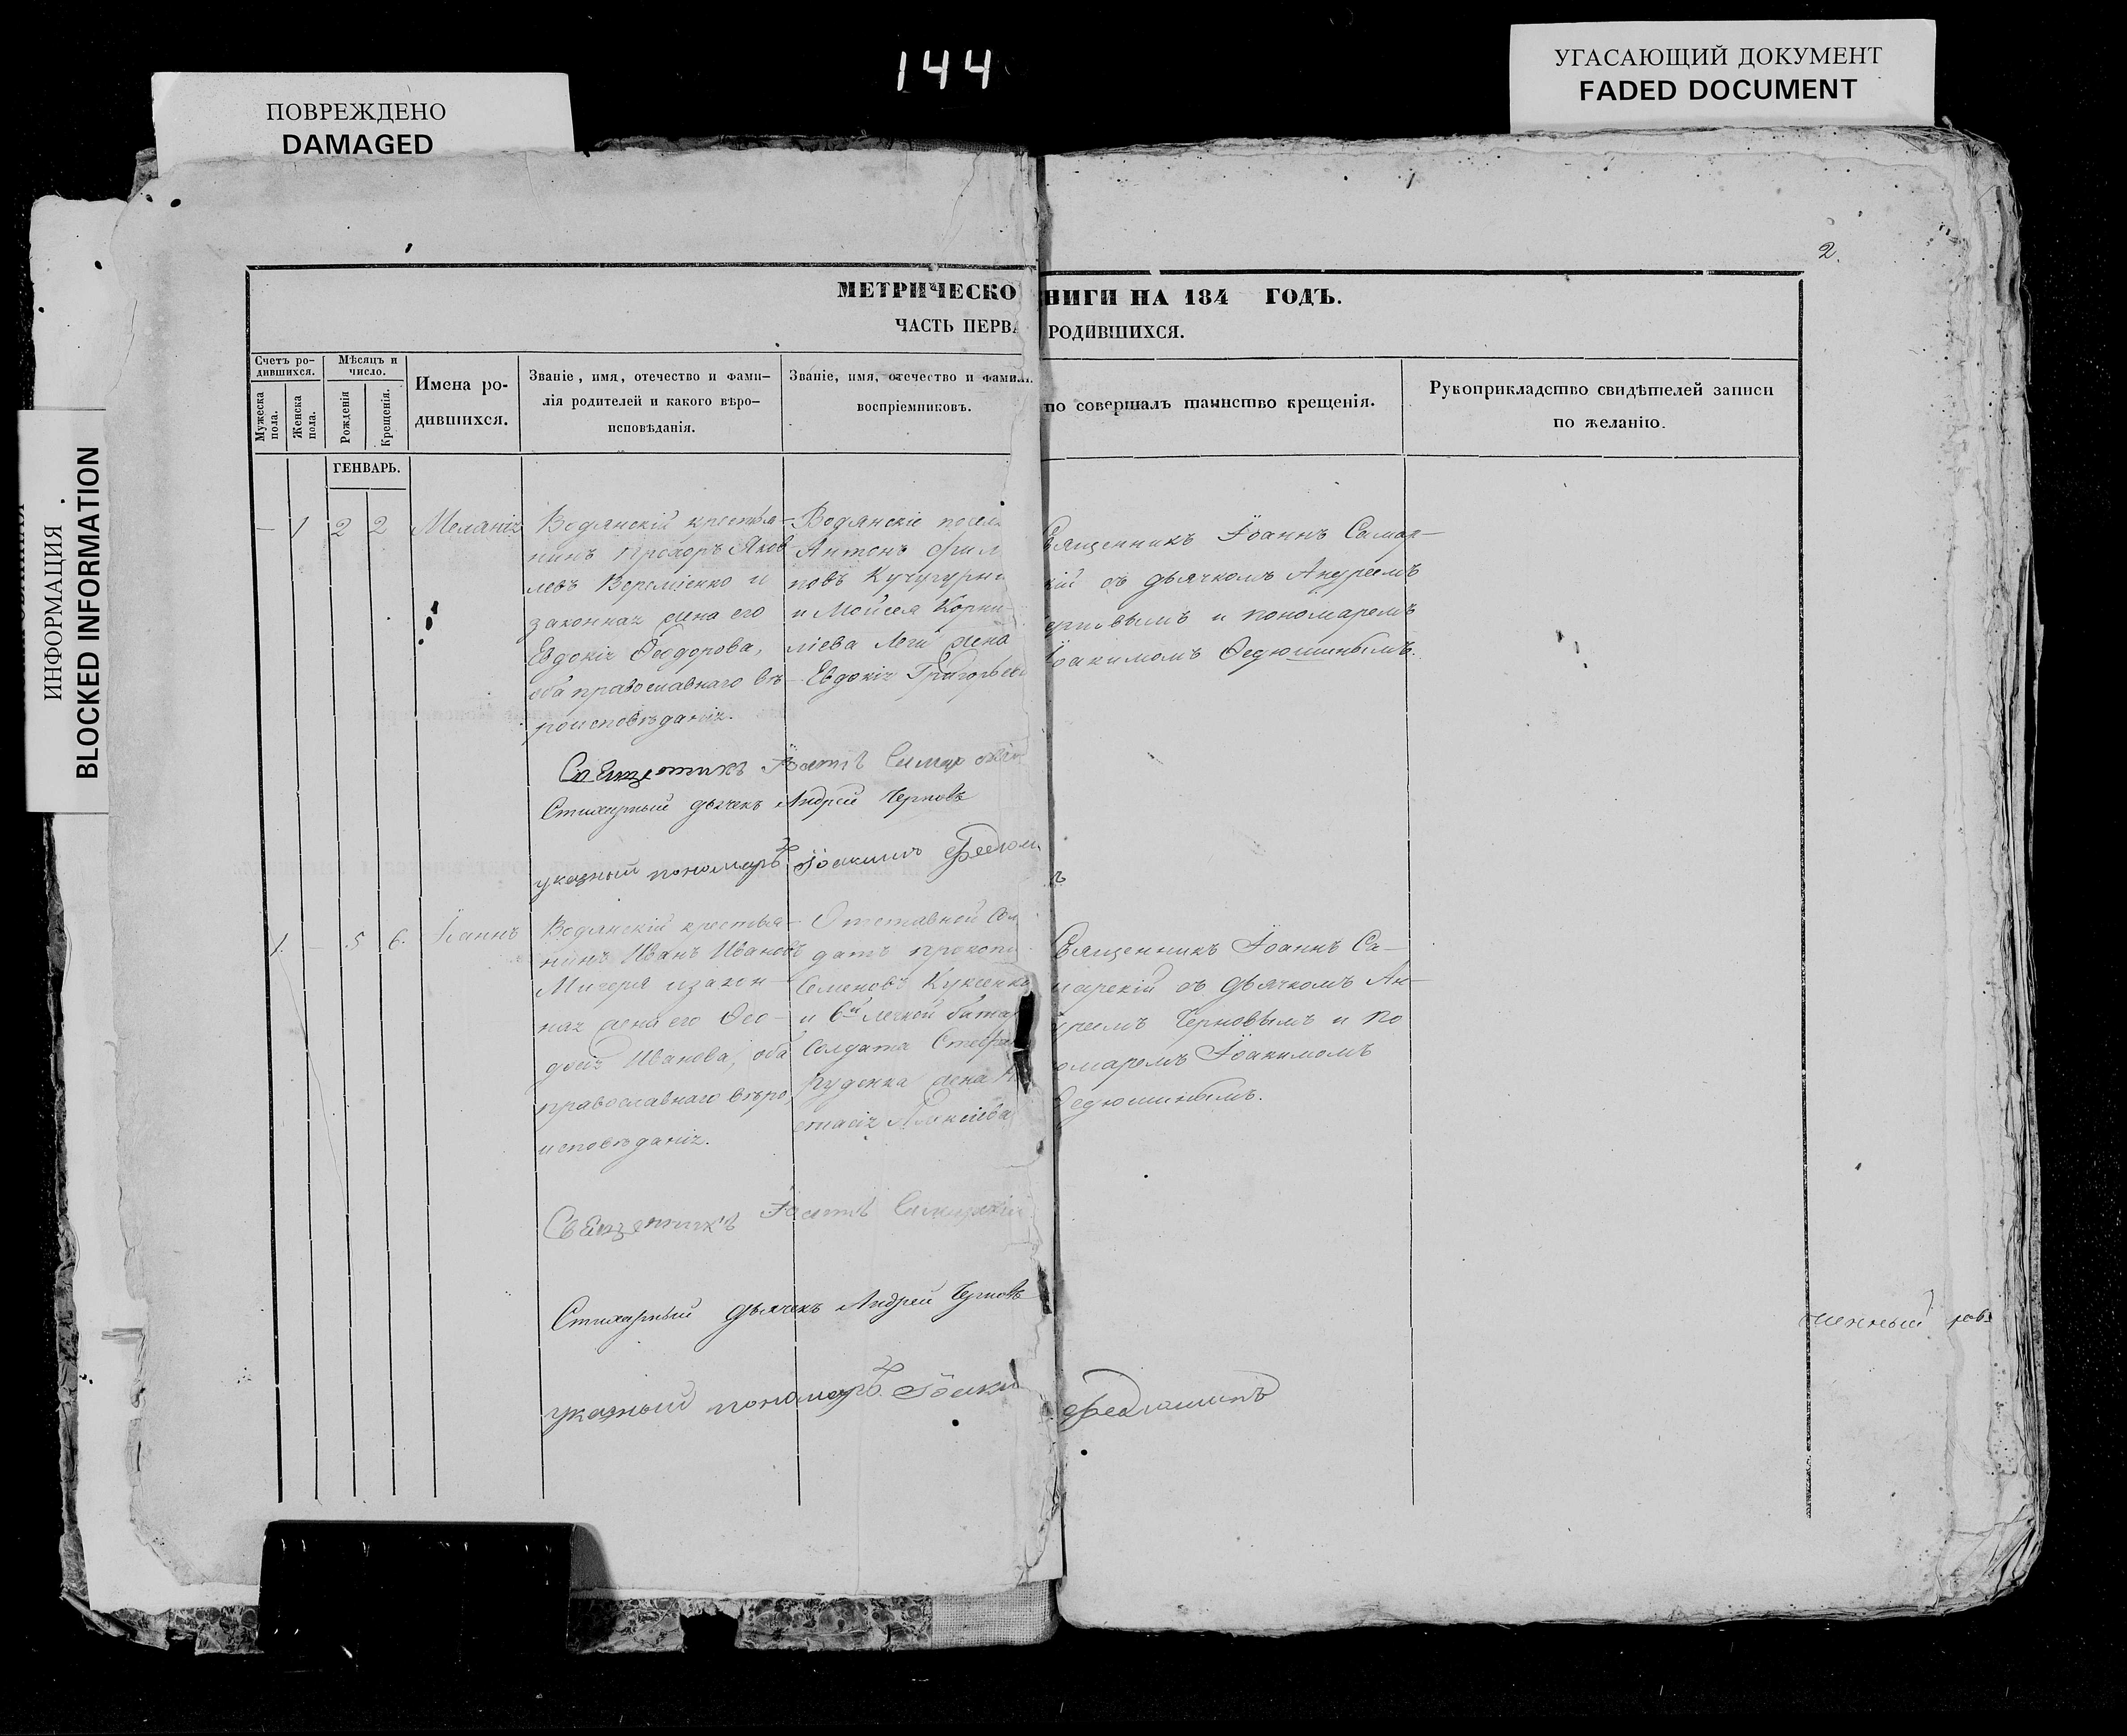 144
ПОВРЕЖДЕНО
DAMAGED
УГАСАЮЩИЙ ДОКУМЕНТ
FADED DOCUMENT
ИНФОРМАЦИЯ
BLOCKED INFORMATION
2.
МЕТРИЧЕСКО НИГИ НА 184 ГОДЪ.
ЧАСТЬ ПЕРВА РОДИВШИХСЯ.
Счетъ ро-
дившихся.
Мужеска
пола.
Женска
пола.
Мѣсяцъ и
число.
Рожденія
Крещенія.
Имена ро-
дившихся.
Званіе, имя, отечество и фами-
лія родителей и какого вѣро-
исповѣданія.
Званіе, имя, отечество и фамил.
воспріемниковъ.
по совершалъ таинство крещенія.
Рукоприкладство свидѣтелей записи
по желанію.
ГЕНВАРЬ.
— 1 2 2
Меланія
Водянскій крестья-
нинъ Прохоръ Яков
левъ и
законная жена его
Евдокія Ѳеодорова,
оба православнаго вѣ-
роисповѣданія.
Водянскіе посел
Антонъ Фил
повъ
и Мойсея Корни-
ліева жена
Евдокія Григорьев
Священникъ Іоаннъ Самар-
кій съ дьячкомъ Андреемъ
ерновымъ и пономаремъ
Іоакимомъ Ѳедюшинымъ.
Священникъ Іоаннъ Самарскій
Стихарный дьячекъ Андрей Черновъ
указный пономарь Іоакимъ Федюш
ъ
1. — 5 6.
Іоаннъ
Водянскій крестья-
нинъ Иванъ Ивановъ
и закон-
ная жена его Ѳео-
досія Иванова, оба
православнаго вѣро
исповѣданія.
Отставной сол
датъ Прокопі
Семеновъ Куксенко
и 6й легкой бата
солдата Стефа
Руденка жена А
стасія Алексіева
Священникъ Іоаннъ Са-
марскій съ дьячкомъ Ан-
дреемъ Черновымъ и по
омаремъ Іоакимомъ
Ѳедюшинымъ.
Священникъ Іоаннъ Самарскій
Стихарный дьячекъ Андрей Черновъ
указный пономарь Іоаки Федюшинъ